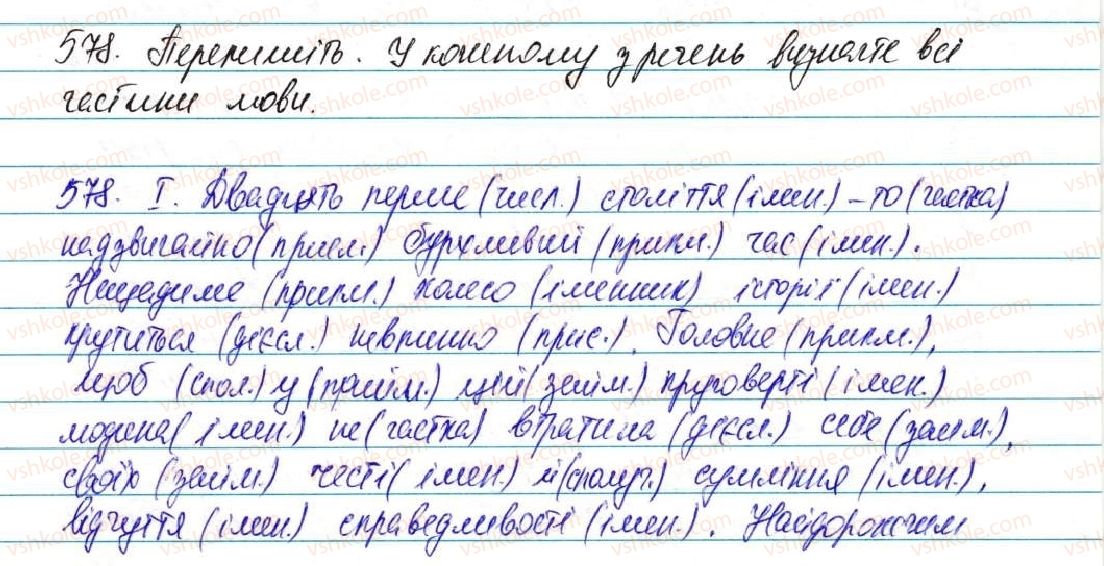 578. Перепишіть. У кожному з речень визначте всі
частини мови.
578. І. Двадцять перше (числ.) століття (імен.) – то (частка)
надзвичайно (присл.) бурхливий (прикм.) час (імен.).
Нещадиме (прикм.) колесо (іменник) історії (імен.)
крутиться (дієсл.) невпинно (прис.). Головне (прикм.),
щоб (спол.) у (прийм.) цій (займ.) круговерті (імен.)
людина (імен.) не (частка) втратила (дієсл.) себе (займ.),
своєю (займ.) честі (імен.) й (сполуч.) сумління (імен.),
відчуття (імен.) справедливості (імен.). Найдорожчим